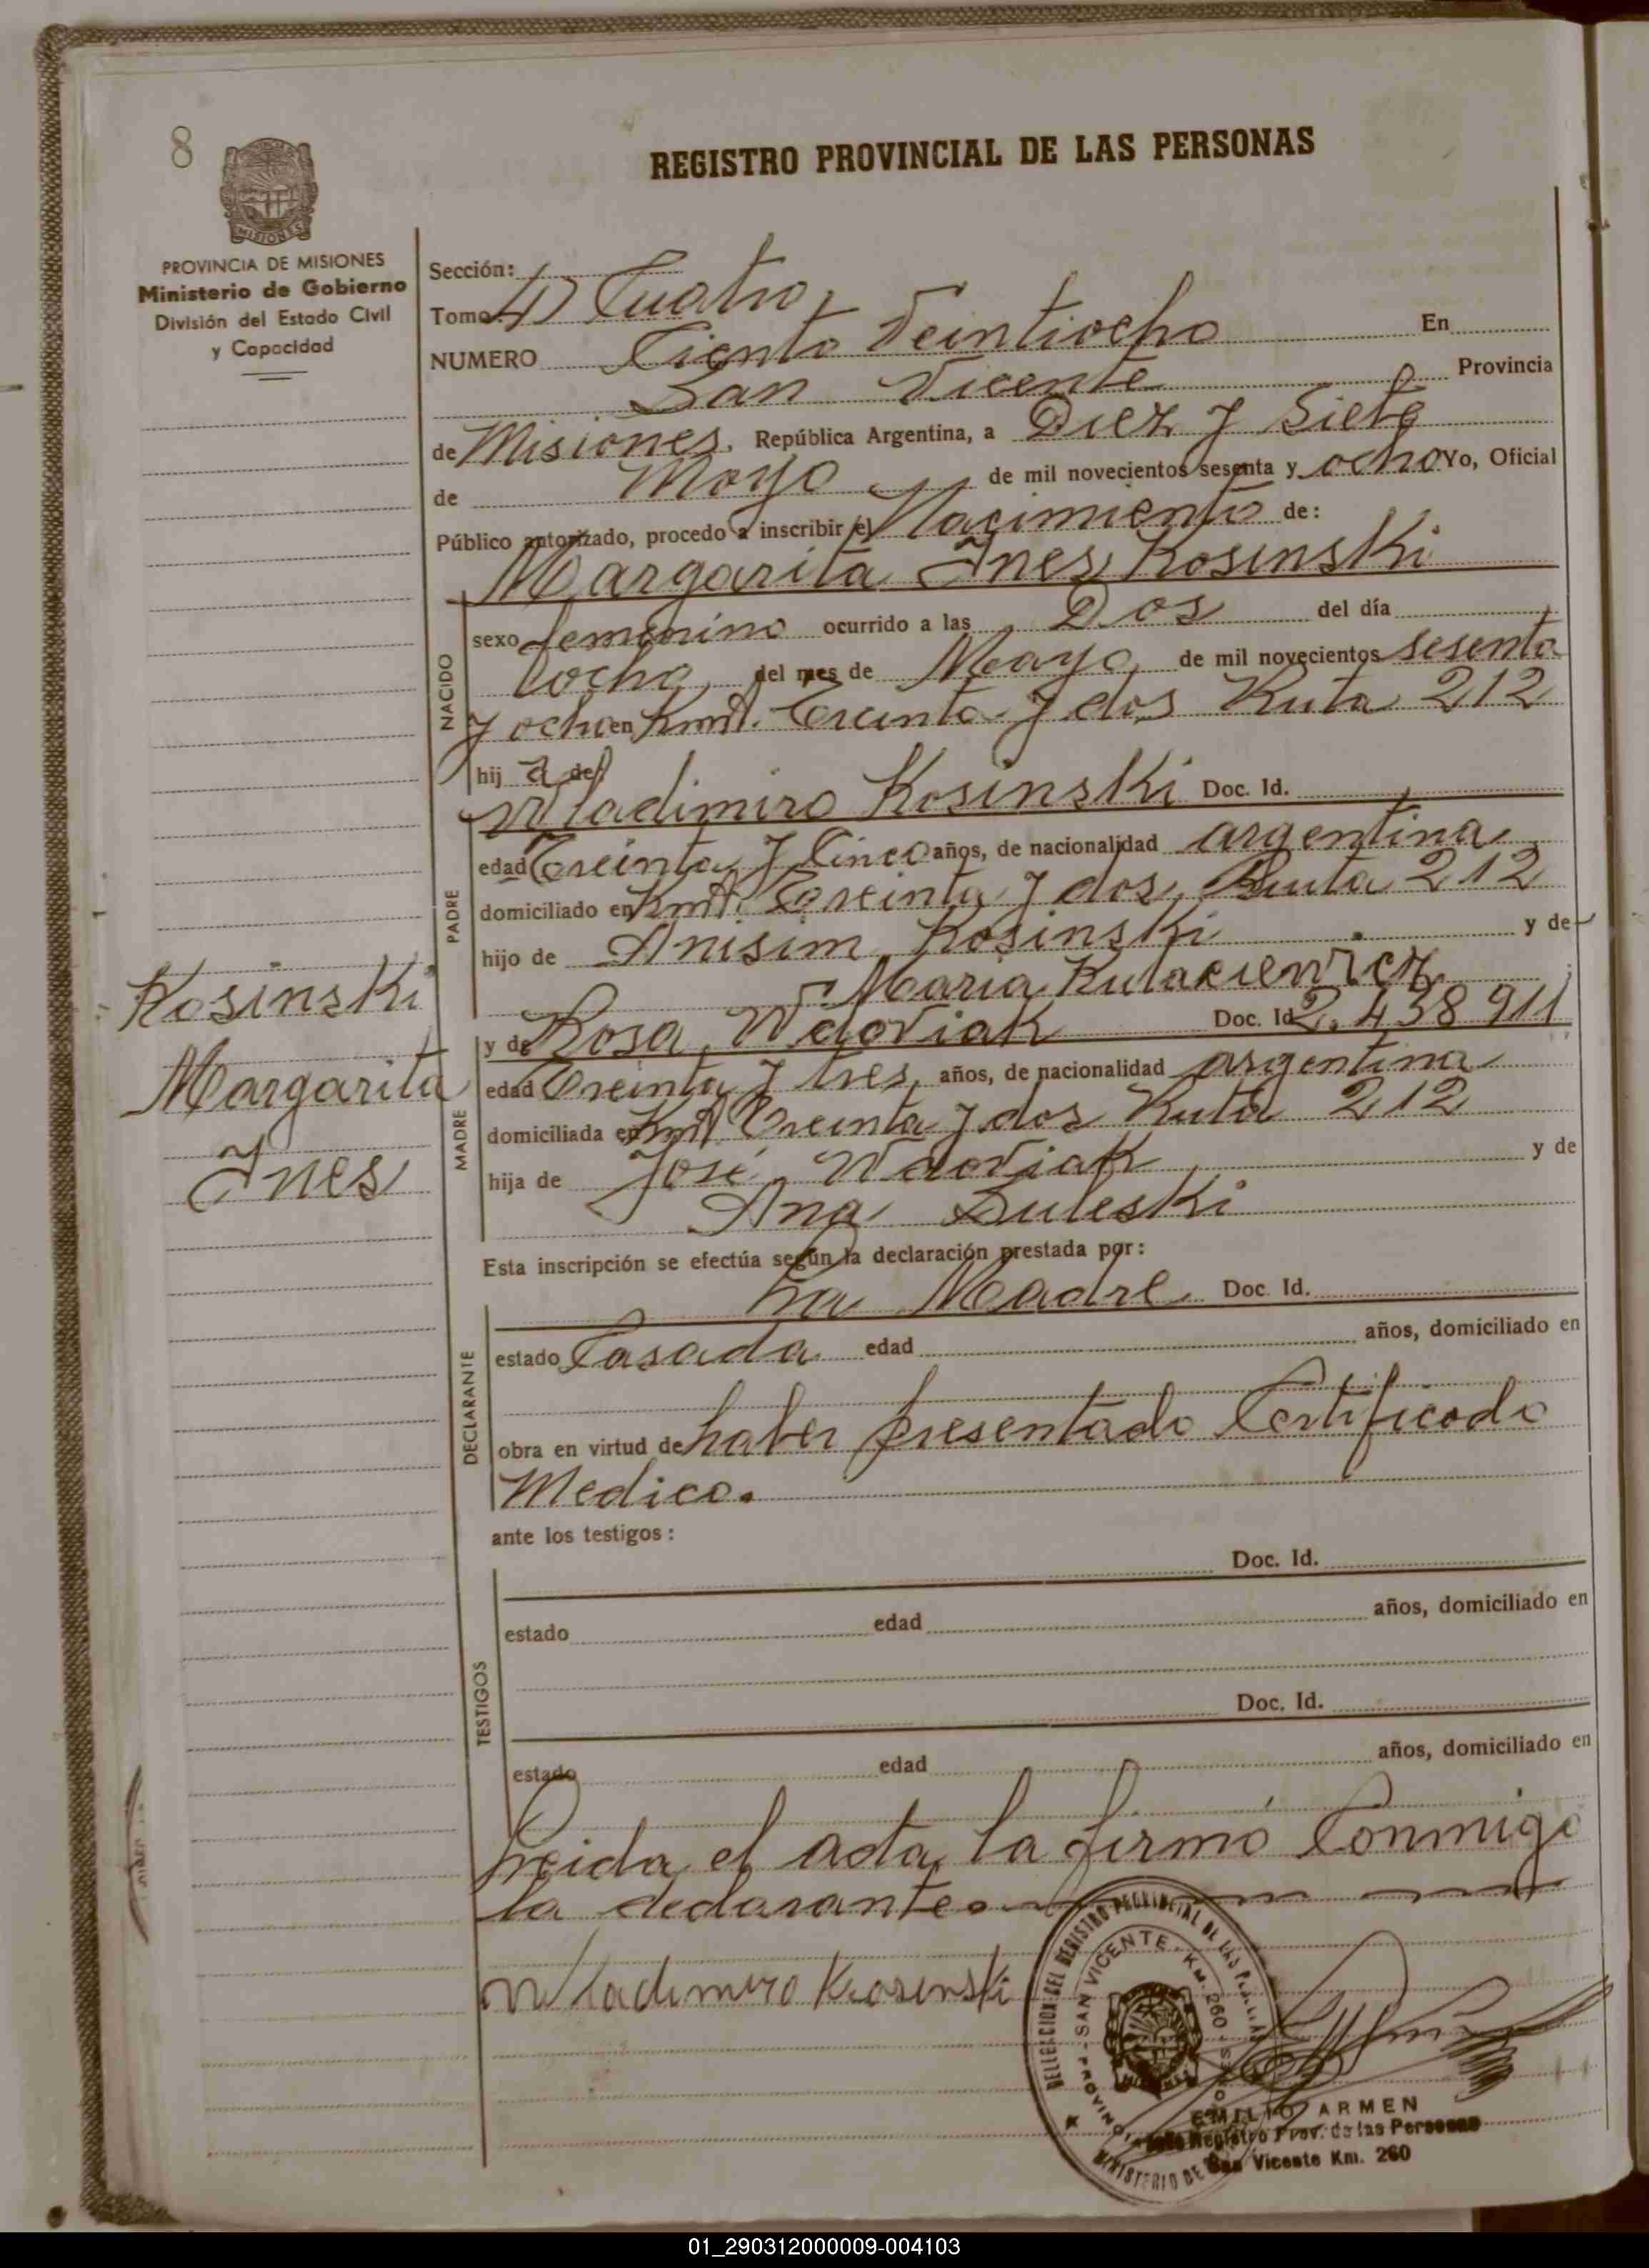 8
REGISTRO PROVINCIAL DE LAS PERSONAS
MISIONES
PROVINCIA DE MISIONES
Ministerio de Gobierno
División del Estado Civil
y Capacidad
Sección:
Tomo: 4) Cuatro
NUMERO Ciento Veintiocho En
San Vicente Provincia
de Misiones, República Argentina, a Diez y Siete
de Mayo de mil novecientos sesenta y ocho Yo, Oficial
Público autorizado, procedo a inscribir el Nacimiento de:
Margarita Ines Kosinski
NACIDO
sexo femenino ocurrido a las Dos del día
ocho del mes de Mayo de mil novecientos sesenta
y ocho en Kmt. Treinta y dos Ruta 212
hij a de
PADRE
Wladimiro Kosinski Doc. Id.
edad Treinta y Cinco años, de nacionalidad argentina
domiciliado en Kmt. Treinta y dos, Ruta 212
hijo de Anisim Kosinski y de
Maria
Kosinski
Margarita
Ines
MADRE
y de Rosa Wdoviak Doc. Id. 2.438911
edad Treinta y tres, años, de nacionalidad argentina
domiciliada en Kmt Treinta y dos Ruta 212
hija de José Wdoviak y de
Ana Suleski
Esta inscripción se efectúa según la declaración prestada por:
DECLARANTE
La Madre Doc. Id.
estado Casada edad años, domiciliado en
obra en virtud de haber presentado Certificado
Medico.
ante los testigos:
TESTIGOS
Doc. Id.
estado edad años, domiciliado en
Doc. Id.
estado edad años, domiciliado en
Leida el acta, la firmó Conmigo
la declarante.
Wladimiro Kosinski
DELEGACION DEL REGISTRO PROVINCIAL DE LAS
SAN VICENTE - KM. 260
MINISTERIO DE
EMILIO ARMEN
Jefe Registro Prov. de las Personas
San Vicente Km. 260
01_290312000009-004103